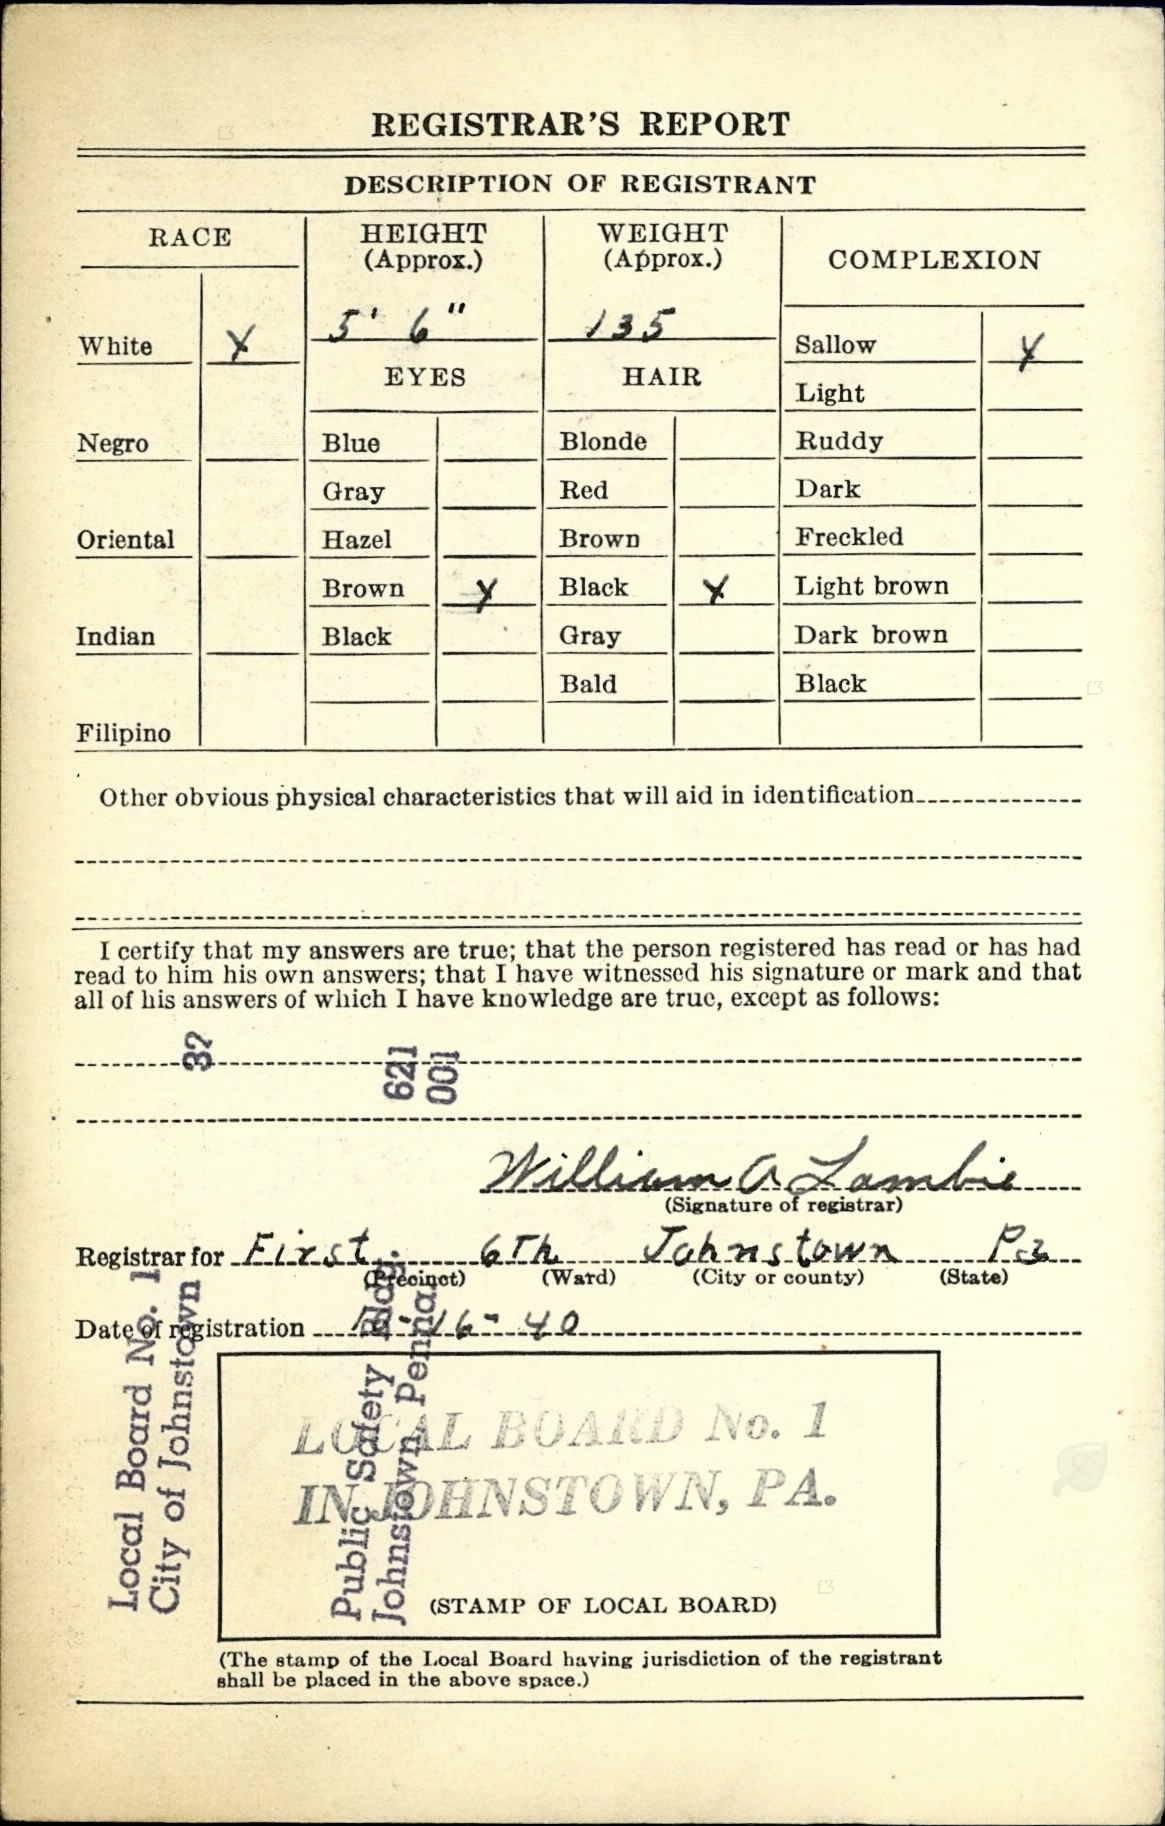 REGISTRAR'S REPORT
DESCRIPTION OF REGISTRANT
RACE
HEIGHT
(Approx.)
WEIGHT
(Approx.)
COMPLEXION
5' 6"
135
White X
Sallow X
EYES
HAIR
Light
Negro
Blue
Blonde
Ruddy
Gray
Red
Dark
Oriental
Hazel
Brown
Freckled
Brown X
Black X
Light brown
Indian
Black
Gray
Dark brown
Bald
Black
Filipino
Other obvious physical characteristics that will aid in identification
I certify that my answers are true; that the person registered has read or has had
read to him his own answers; that I have witnessed his signature or mark and that
all of his answers of which I have knowledge are true, except as follows:
32
621
001
William A Lambie
(Signature of registrar)
Registrar for First 6Th Johnstown Pa
(Precinct) (Ward) (City or county) (State)
Date of registration 10-16-40
Local Board No. 1
City of Johnstown
Public Safety Bldg.
Johnstown, Penna.
LOCAL BOARD No. 1
IN JOHNSTOWN, PA.
(STAMP OF LOCAL BOARD)
(The stamp of the Local Board having jurisdiction of the registrant
shall be placed in the above space.)